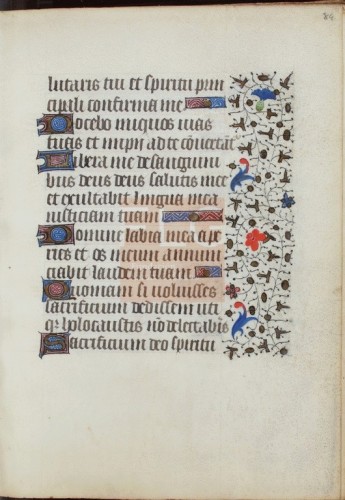 84
lutaris tui et spiritu prin
cipali confirma me
Docebo iniquos vias
tuas et impii ad te cōuertēt̄
Libera me de sanguini
bus deus deus salutis mee
et exultabit lingua mea
iusticiam tuam
Domine labia mea ape
ries et os meum annun
ciabit laudem tuam
Quoniam si voluisses
sacrificium dedissem uti
qȝ holocaustis nō delectabis
Sacrificium deo spiritu